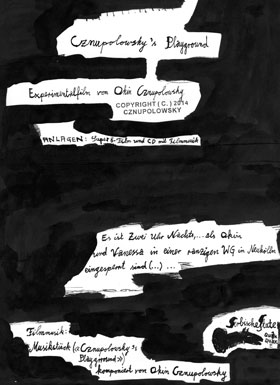 Cznupolowsky's Playground
Experimentalfilm von Okin Cznupolowsky
COPYRIGHT (C.) 2014
CZNUPOLOWSKY
ANLAGEN: Super 8-Film und CD mit Filmmusik
Es ist Zwei Uhr Nachts,... als Okin
und Vanessa in einer ranzigen WG in Neukölln
eingesperrt sind (...) ...
Filmmusik:
Musikstück (»Cznupolowsky's
Playground«)
komponiert von Okin Cznupolowsky